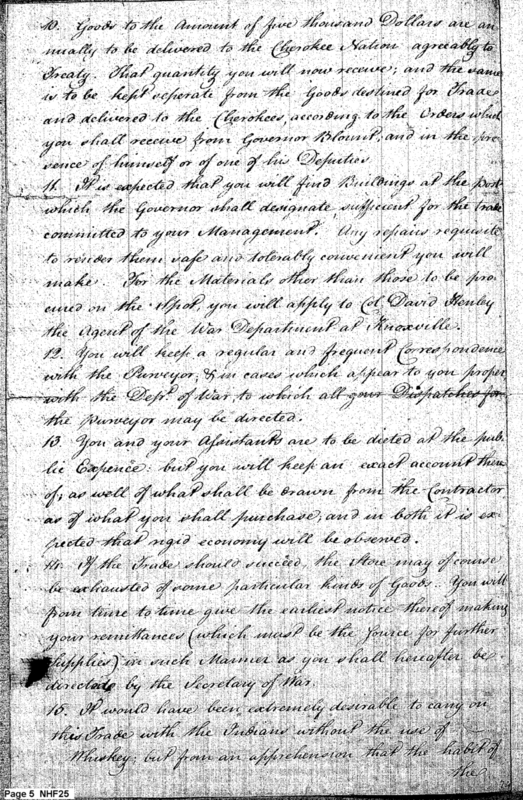 10. Goods to the Amount of five thousand Dollars are an
nually to be delivered to the Cherokee Nation agreably to
Treaty. That quantity you will now receive; and the same
is to be kept seperate from the Goods destined for Trade
and delivered to the Cherokees, according to the Orders which
you shall receive from Governor Blount, and in the pre
sence of himself or of one of his Deputies
11. It is expected that you will find Buildings at the post
which the Governor shall designate, sufficient for the trade
committed to your Management. Any repairs requisite
to render them safe and tolerably convenient you will
make. For the Materials other than those to be pro
cured on the Spot, you will apply to Col. David Henley
the Agent of the War Department at Knoxville.
12. You will keep a regular and frequent Correspondence
with the Purveyor, & in cases which appear to you proper
with the Dept. of War, to which all your Dispatches for
the Purveyor may be directed.
13. You and your Assistants are to be dieted at the pub
lic Expence: but you will keep an exact account there
of, as well of what shall be drawn from the Contractor
as of what you shall purchase; and in both it is ex
pected that rigid economy will be observed.
14. If the Trade should succeed, the Store may of course
be exhausted of some particular kinds of Goods. You will
from time to time give the earliest notice thereof making
your remittances (which must be the source for further
supplies) in such Manner as you shall hereafter be
directed by the Secretary of War.
15. It would have been extremely desirable to carry on
this Trade with the Indians without the use of
Whiskey; but from an apprehension that the habit of
the
Page 5 NHF25